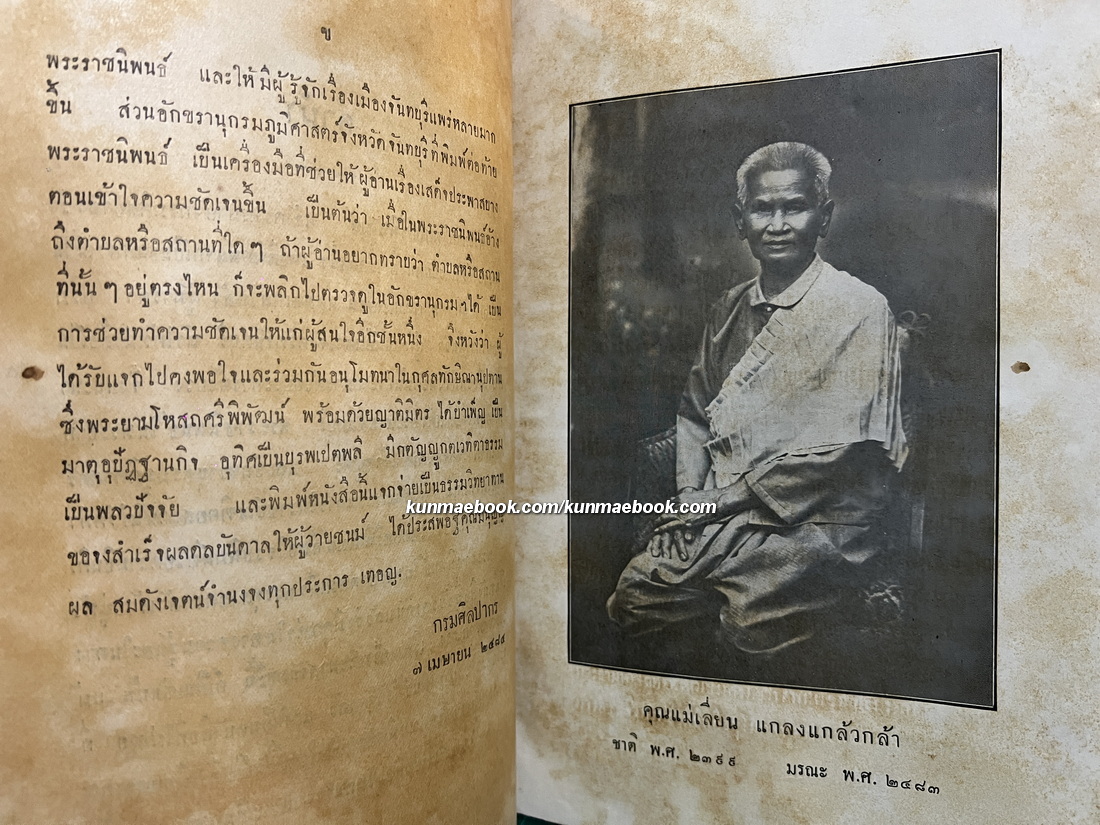 ข
พระราชนิพนธ์ และให้มีผู้รู้จักเรื่องเมืองจันทบุรีแพร่หลายมาก
ขึ้น ส่วนอักขรานุกรมภูมิศาสตร์จังหวัดจันทบุรีที่พิมพ์ต่อท้าย
พระราชนิพนธ์ เป็นเครื่องมือที่ช่วยให้ผู้อ่านเรื่องเสด็จประพาสบาง
ตอนเข้าใจความชัดเจนขึ้น เป็นต้นว่า เมื่อในพระราชนิพนธ์อ้าง
ถึงตำบลหรือสถานที่ใด ๆ ถ้าผู้อ่านอยากทราบว่า ตำบลหรือสถาน
ที่นั้น ๆ อยู่ตรงไหน ก็จะพลิกไปตรวจดูในอักขรานุกรม ฯ ได้ เป็น
การช่วยทำความชัดเจนให้แก่ผู้สนใจอีกชั้นหนึ่ง จึงหวังว่า ผู้
ได้รับแจกไปคงพอใจและร่วมกันอนุโมทนาในกุศลทักษิณานุปทาน
ซึ่งพระยามโหสถศรีพิพัฒน์ พร้อมด้วยญาติมิตร ได้บำเพ็ญเป็น
มาตุอุปัฏฐานกิจ อุทิศเป็นบุรพเปตพลี มีกตัญญูกตเวทิตาธรรม
เป็นพลวปัจจัย และพิมพ์หนังสือนี้แจกจ่ายเป็นธรรมวิทยาทาน
ขอจงสำเร็จผลดลบันดาลให้ผู้วายชนม์ ได้ประสพ
ผล สมดังเจตน์จำนงจงทุกประการ เทอญ.
กรมศิลปากร
๗ เมษายน ๒๔๘๔
kunmaebook.com/kunmaebook.com
คุณแม่เลี่ยน แกลงแกล้วกล้า
ชาติ พ.ศ. ๒๓๙๙ มรณะ พ.ศ. ๒๔๘๓